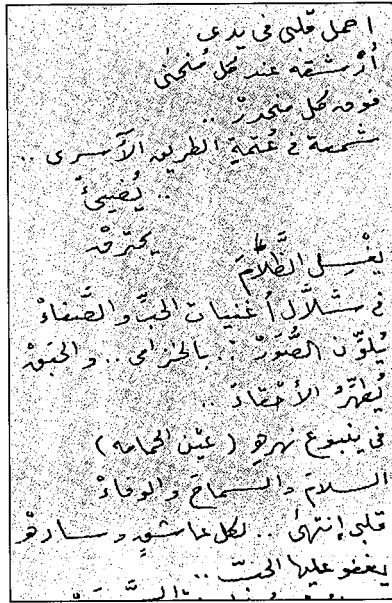 احمل قلبى فى يدى
أرشقه عند كل مُنحنى
فوق كل منحدرْ ..
شمعة فى عُتمةِ الطريق الآسرى ..
.. يُضيئُ
يحترقْ
يغسل الظَّلامَ
فى شلَّال أغنيات الحبّ والصَّفاءْ
يُلوّن الصُّوَرْ .. بالخزامى .. والحبَقْ
يُطهّرُ الأحقادَ ..
فى ينبوع نهرهِ (عيْن الحمامه)
السلامَ والسماحَ والوفاءْ
قلبى إنتهى .. لكل عاشقٍ وسادهْ
يغفو عليها الحبّ ..